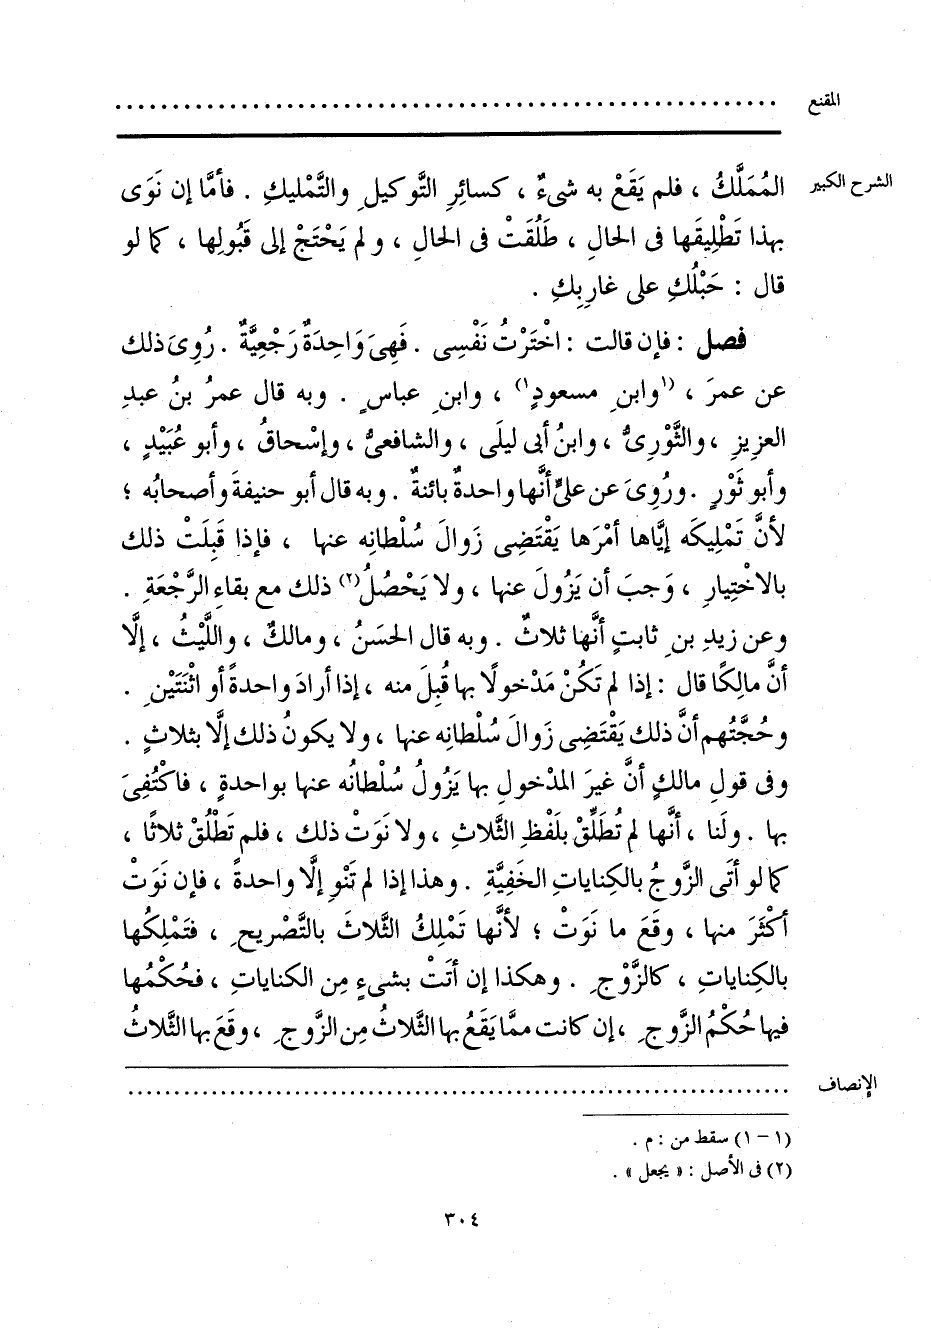 المقنع ..........................................................
الشرح الكبير المُمَلَّكُ ، فلم يَقَعْ به شىءٌ ، كسائِرِ التَّوكيلِ والتَّمْليكِ . فأمَّا إن نَوَى
بهذا تَطْلِيقَها فى الحالِ ، طَلُقَتْ فى الحالِ ، ولم يَحْتَجْ إلى قَبُولِها ، كما لو
قال : حَبْلُكِ على غارِبِكِ .
فصل : فإن قالت : اخْتَرْتُ نَفْسِى . فَهِىَ وَاحِدَةٌ رَجْعِيَّةٌ . رُوِىَ ذلك
عن عمرَ ، (١وابنِ مسعودٍ١) ، وابنِ عباسٍ . وبه قال عمرُ بنُ عبدِ
العزِيزِ ، والثَّوْرِىُّ ، وابنُ أبى ليلَى ، والشافعىُّ ، وإسْحاقُ ، وأبو عُبَيْدٍ ،
وأبو ثَوْرٍ . ورُوِىَ عن علىٍّ أنَّها واحدةٌ بائنةٌ . وبه قال أبو حنيفةَ وأصحابُه ؛
لأنَّ تَمْلِيكَه إيَّاها أمْرَها يَقْتَضِى زَوالَ سُلْطانِه عنها ، فإذا قَبِلَتْ ذلك
بالاخْتِيارِ ، وَجبَ أن يَزُولَ عنها ، ولا يَحْصُلُ(٢) ذلك مع بقاءِ الرَّجْعَةِ .
وعن زيدِ بنِ ثابتٍ أنَّها ثلاثٌ . وبه قال الحسَنُ ، ومالكٌ ، واللَّيْثُ ، إلَّا
أنَّ مالِكًا قال : إذا لم تَكُنْ مَدْخولًا بها قُبِلَ منه ، إذا أرادَ واحدةً أو اثْنَتَيْنِ .
وحُجَّتُهم أنَّ ذلك يَقْتَضِى زَوالَ سُلْطانِه عنها ، ولا يكونُ ذلك إلَّا بثلاثٍ .
وفى قولِ مالكٍ أنَّ غيرَ المدْخولِ بها يَزُولُ سُلْطانُه عنها بواحدةٍ ، فاكْتُفِىَ
بها . ولَنا ، أنَّها لم تُطَلِّقْ بلَفْظِ الثَّلاثِ ، ولا نَوَتْ ذلك ، فلم تَطْلُقْ ثلاثًا ،
كما لو أتَى الزَّوجُ بالكِناياتِ الخَفِيَّةِ . وهذا إذا لم تَنْوِ إلَّا واحدةً ، فإن نَوَتْ
أكْثَرَ منها ، وقَعَ ما نَوَتْ ؛ لأنَّها تَمْلِكُ الثَّلاثَ بالتَّصْريحِ ، فتَمْلِكُها
بالكِناياتِ ، كالزَّوْجِ . وهكذا إن أتَتْ بشىءٍ مِن الكناياتِ ، فحُكْمُها
فيها حُكْمُ الزَّوجِ ، إن كانت ممَّا يَقَعُ بها الثَّلاثُ مِن الزَّوجِ ، وقَعَ بها الثَّلاثُ
الإنصاف ..........................................................
(١ - ١) سقط من : م .
(٢) فى الأصل : « يجعل » .
٣٠٤